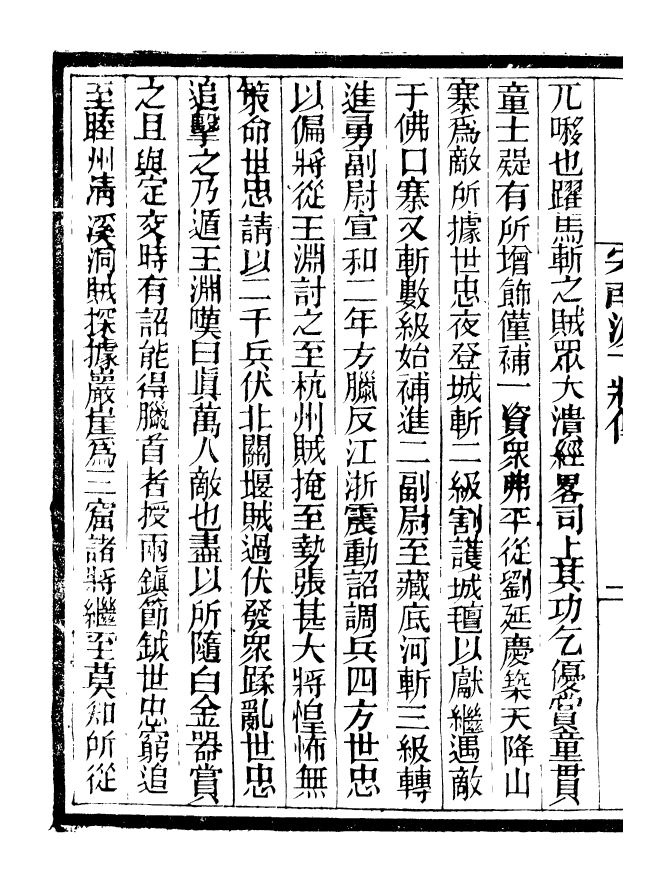 兀㖼也躍馬斬之賊眾大潰經畧司上其功乞優賞童貫
童士疑有所增飾僅補一資衆弗平從劉延慶築天降山
寨爲敵所據世忠夜登城斬二級割護城氊以獻繼遇敵
于佛口寨又斬數級始補進二副尉至藏底河斬三級轉
進勇副尉宣和二年方臘反江浙震動詔調兵四方世忠
以偏將從王淵討之至杭州賊掩至勢張甚大將惶怖無
策命世忠請以二千兵伏北關堰賊過伏發衆蹂亂世忠
追擊之乃遁王淵嘆曰眞萬人敵也盡以所隨白金器賞
之且與定交時有詔能得臘首者授兩鎭節鉞世忠窮追
至睦州淸溪洞賊探據巖崖爲三窟諸將繼至莫知所從